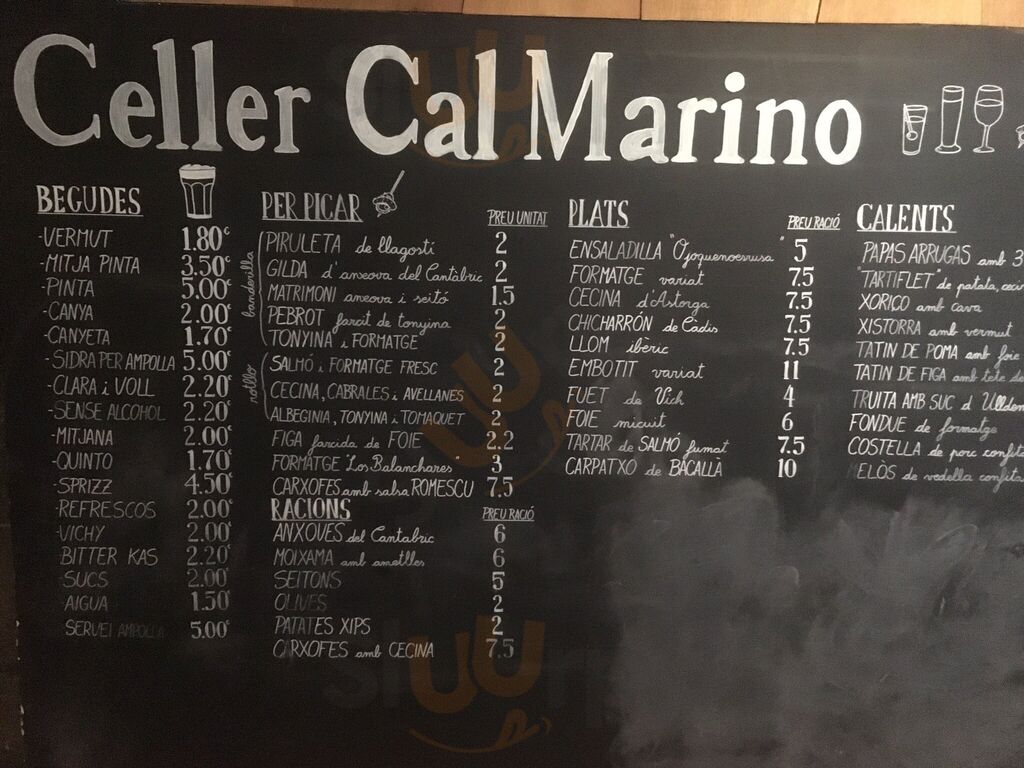 Celler Cal Marino
BEGUDES
-VERMUT 1.80€
-MITJA PINTA 3.50€
-PINTA 5.00€
-CANYA 2.00€
-CANYETA 1.70€
-SIDRA PER AMPOLLA 5.00€
-CLARA i VOLL 2.20€
-SENSE ALCOHOL 2.20€
-MITJANA 2.00€
-QUINTO 1.70€
-SPRIZZ 4.50€
-REFRESCOS 2.00€
-VICHY 2.00€
BITTER KAS 2.20€
SUCS 2.00€
AIGUA 1.50€
SERVEI AMPOLLA 5.00€
PER PICAR PREU UNITAT
banderilla
PIRULETA de llagostí 2
GILDA d'anxova del Cantàbric 2
MATRIMONI anxova i seitó 1.5
PEBROT farcit de tonyina 2
TONYINA i FORMATGE 2
rotllo
SALMÓ i FORMATGE FRESC 2
CECINA, CABRALES i AVELLANES 2
ALBEGINIA, TONYINA i TOMAQUET 2
FIGA farcida de FOIE 2.2
FORMATGE "Los Balanchares" 3
CARXOFES amb salsa ROMESCU 7.5
RACIONS PREU RACIÓ
ANXOVES del Cantabric 6
MOIXAMA amb ametlles 6
SEITONS 5
OLIVES 2
PATATES XIPS 2
CARXOFES amb CECINA 7.5
PLATS PREU RACIÓ
ENSALADILLA 5
FORMATGE variat 7.5
CECINA d'Astorga 7.5
CHICHARRÓN de Cadis 7.5
LLOM ibèric 7.5
EMBOTIT variat 11
FUET de Vich 4
FOIE micuit 6
TARTAR de SALMÓ fumat 7.5
CARPATXO de BACALLÀ 10
CALENTS
PAPAS ARRUGAS amb 3
"TARTIFLET" de patata,
XORIÇO amb cava
XISTORRA amb vermut
TATIN DE POMA amb foie
TATIN DE FIGA amb
TRUITA AMB SUC d'
FONDUE de formatge
COSTELLA de porc
MELÒS de vedella